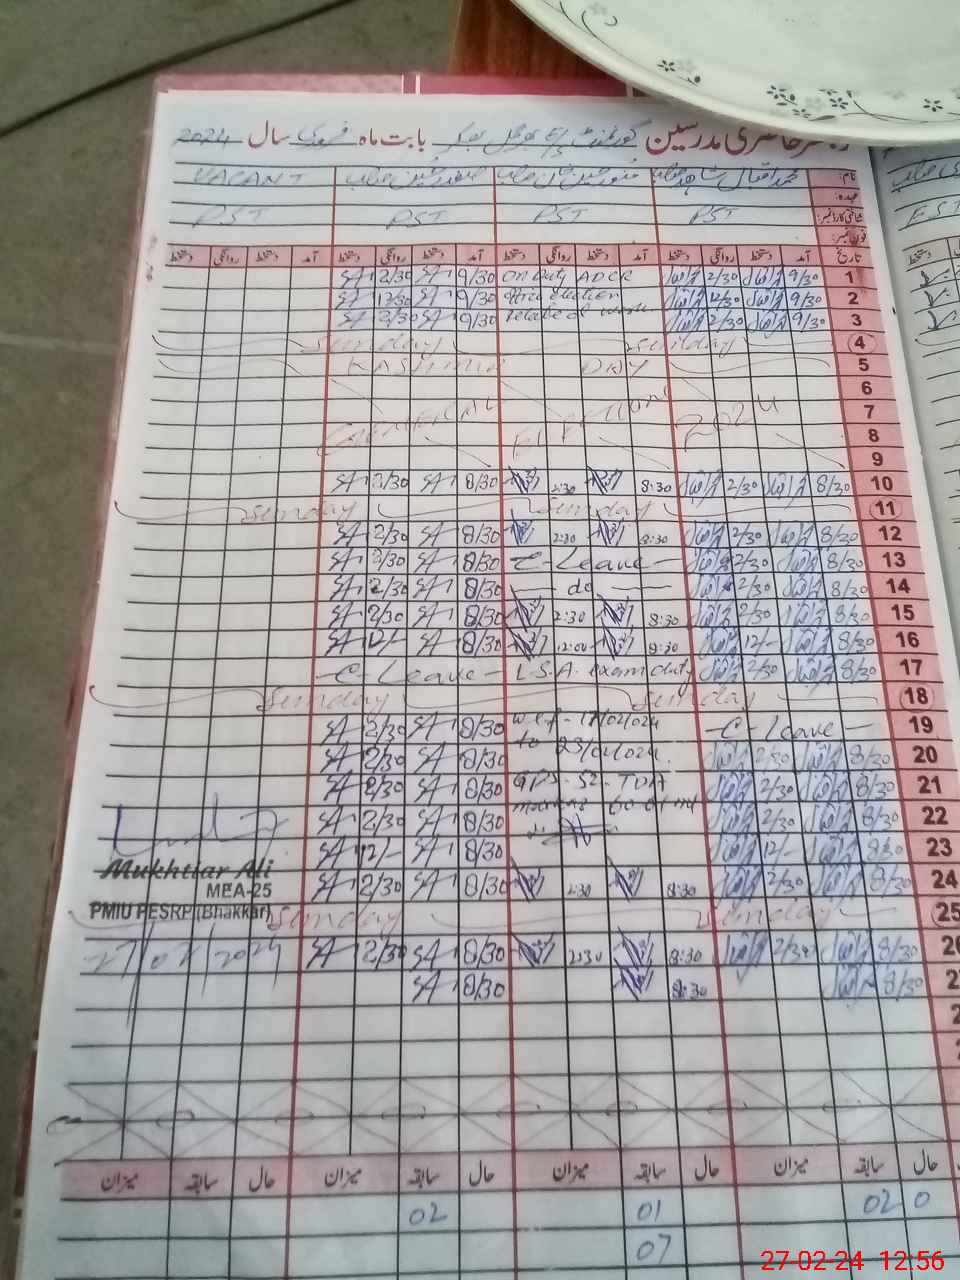 رجسٹر حاضری مدرسین گورنمنٹ بابت ماہ فروری سال 2024
نام: محمد اقبال VACANT
عہدہ:
شناختی کارڈ نمبر: PST PST PST PST
فون نمبر:
تاریخ آمد دستخط روانگی دستخط آمد دستخط روانگی دستخط آمد دستخط روانگی دستخط
1 9/30 2/30 On Duty ADCR 9/30 SA 2/30 SA
2 9/30 12/30 election 9/30 SA 12/30 SA
3 9/30 2/30 related work 9/30 SA 2/30 SA
4 Sunday Sunday
5 KASHMIR DAY
6
7 GENERAL ELECTION 2024
8
9
10 8/30 2/30 8:30 2:30 8/30 SA 2/30 SA
11 Sunday Sunday
12 8/30 2/30 8:30 2:30 8/30 SA 2/30 SA
13 8/30 2/30 C-Leave 8/30 SA 2/30 SA
14 8/30 2/30 do 8/30 SA 2/30 SA
15 8/30 2/30 8:30 2:30 8/30 SA 2/30 SA
16 8/30 12/- 8:30 12:00 8/30 SA 12/- SA
17 8/30 2/30 L.S.A. exam duty C-Leave
18 Sunday Sunday
19 C-Leave w.e.f - 17/02/024 8/30 SA 2/30 SA
20 8/30 2/30 to 23/02/024. 8/30 SA 2/30 SA
21 8/30 2/30 GPS-52-TDA 8/30 SA 2/30 SA
22 8/30 2/30 markaz 8/30 SA 2/30 SA
23 8/30 12/- 8/30 SA 12/- SA
24 8/30 2/30 8:30 2:30 8/30 SA 2/30 SA
Mukhtiar Ali
MEA-25
PMIU PESRP (Bhakkar)
25 Sunday Sunday
26 8/30 2/30 8:30 2:30 8/30 SA 2/30 SA
27/02/2024
8/30 8:30 8/30 SA
حال سابقہ میزان حال سابقہ میزان حال سابقہ میزان حال سابقہ میزان
0 02 01 02
07
27-02-24 12:56